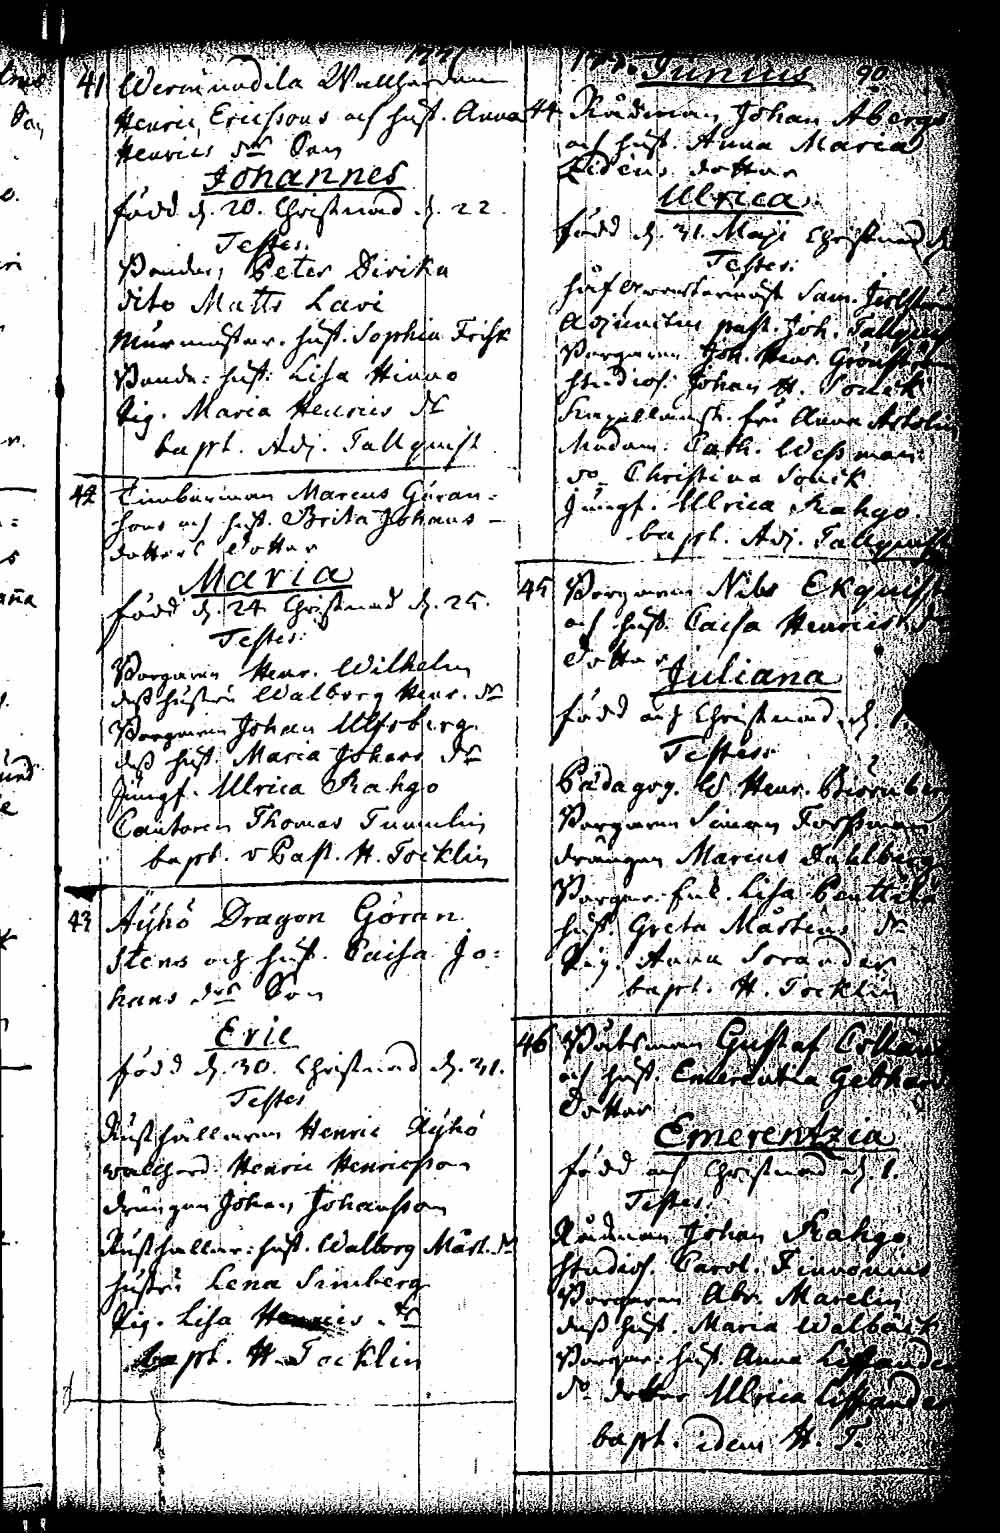 41 Wermundila Wallherden
Henric Ericssons och hust. Anna
Henrics dr Son
Johannes
född d. 20. Christnad d. 22
Testes:
Bonden Peter Dirika
dito Matts Lavi
Murmestar. hust. Sophia Frisk
Bonde: hust: Lisa Hinno
Pig. Maria Henrics dr
bapt. Adj. Tallquist
42 Timberman Marcus Göran=
sons och hust. Brita Johans-
dotters dotter
Maria
född d. 24 Christnad d. 25.
Testes:
Borgaren Henr. Wilhelm
dess hustru Walborg Henr. dr
Borgaren Johan Ulfsberg
dess hust. Maria Johans dr
Jungf. Ulrica Rahgo
Cantoren Thomas Tummelin
bapt. v Past. H. Tocklin
43 Äyhö Dragon Göran
Stens och hust. Caisa Jo=
hans drs Son
Eric
född d. 30. Christnad d. 31.
Testes
Rusthållaren Henric Äyhö
wallherd Henric Henricsson
drängen Johan Johansson
Rusthållar: hust. Walborg Mårt. dr
hustru Lena Simberg
Pig. Lisa Henrics dr
bapt. H. Tocklin
Junius 90
44 Rådman Johan Åbergs
och hust. Anna Maria
Lidéns dotter
Ulrica
född d. 31. Maji Christnad d
Testes:
Adjunctus past. Joh. Tallqvist
Borgaren Joh. Henr. Grönstrand
Studios. Johan H. Sonck
Madam: Cath. Wessman
do Christina Sonck
Jungf. Ulrica Rahgo.
bapt. Adj. Tallquist
45 Borgaren Nils Ekquist
och hust. Caisa Henrics dr
dotter
Juliana
född och Christnad d.
Testes:
Pädagog. W Henr. Biörnberg
Borgaren Simon Forssman
drängen Marcus Dahlberg
Borgar: Enk. Lisa Penttilä
hust. Greta Mårtens dr
Pig. Anna Sorander
bapt. H. Tocklin
46 Båtsman Gustaf
och hust. Emerentia Gebhard
dotter
Emerentzia
född och Christnad d. 1.
Testes:
Rådman Johan Rahgo
Studios. Carol. Finnonius
Borgaren Abr. Marelin
dess hust. Maria Walbäck
Borgar: hust. Anna Lissander
do dotter Ulrica Lissander
bapt. idem H. T.